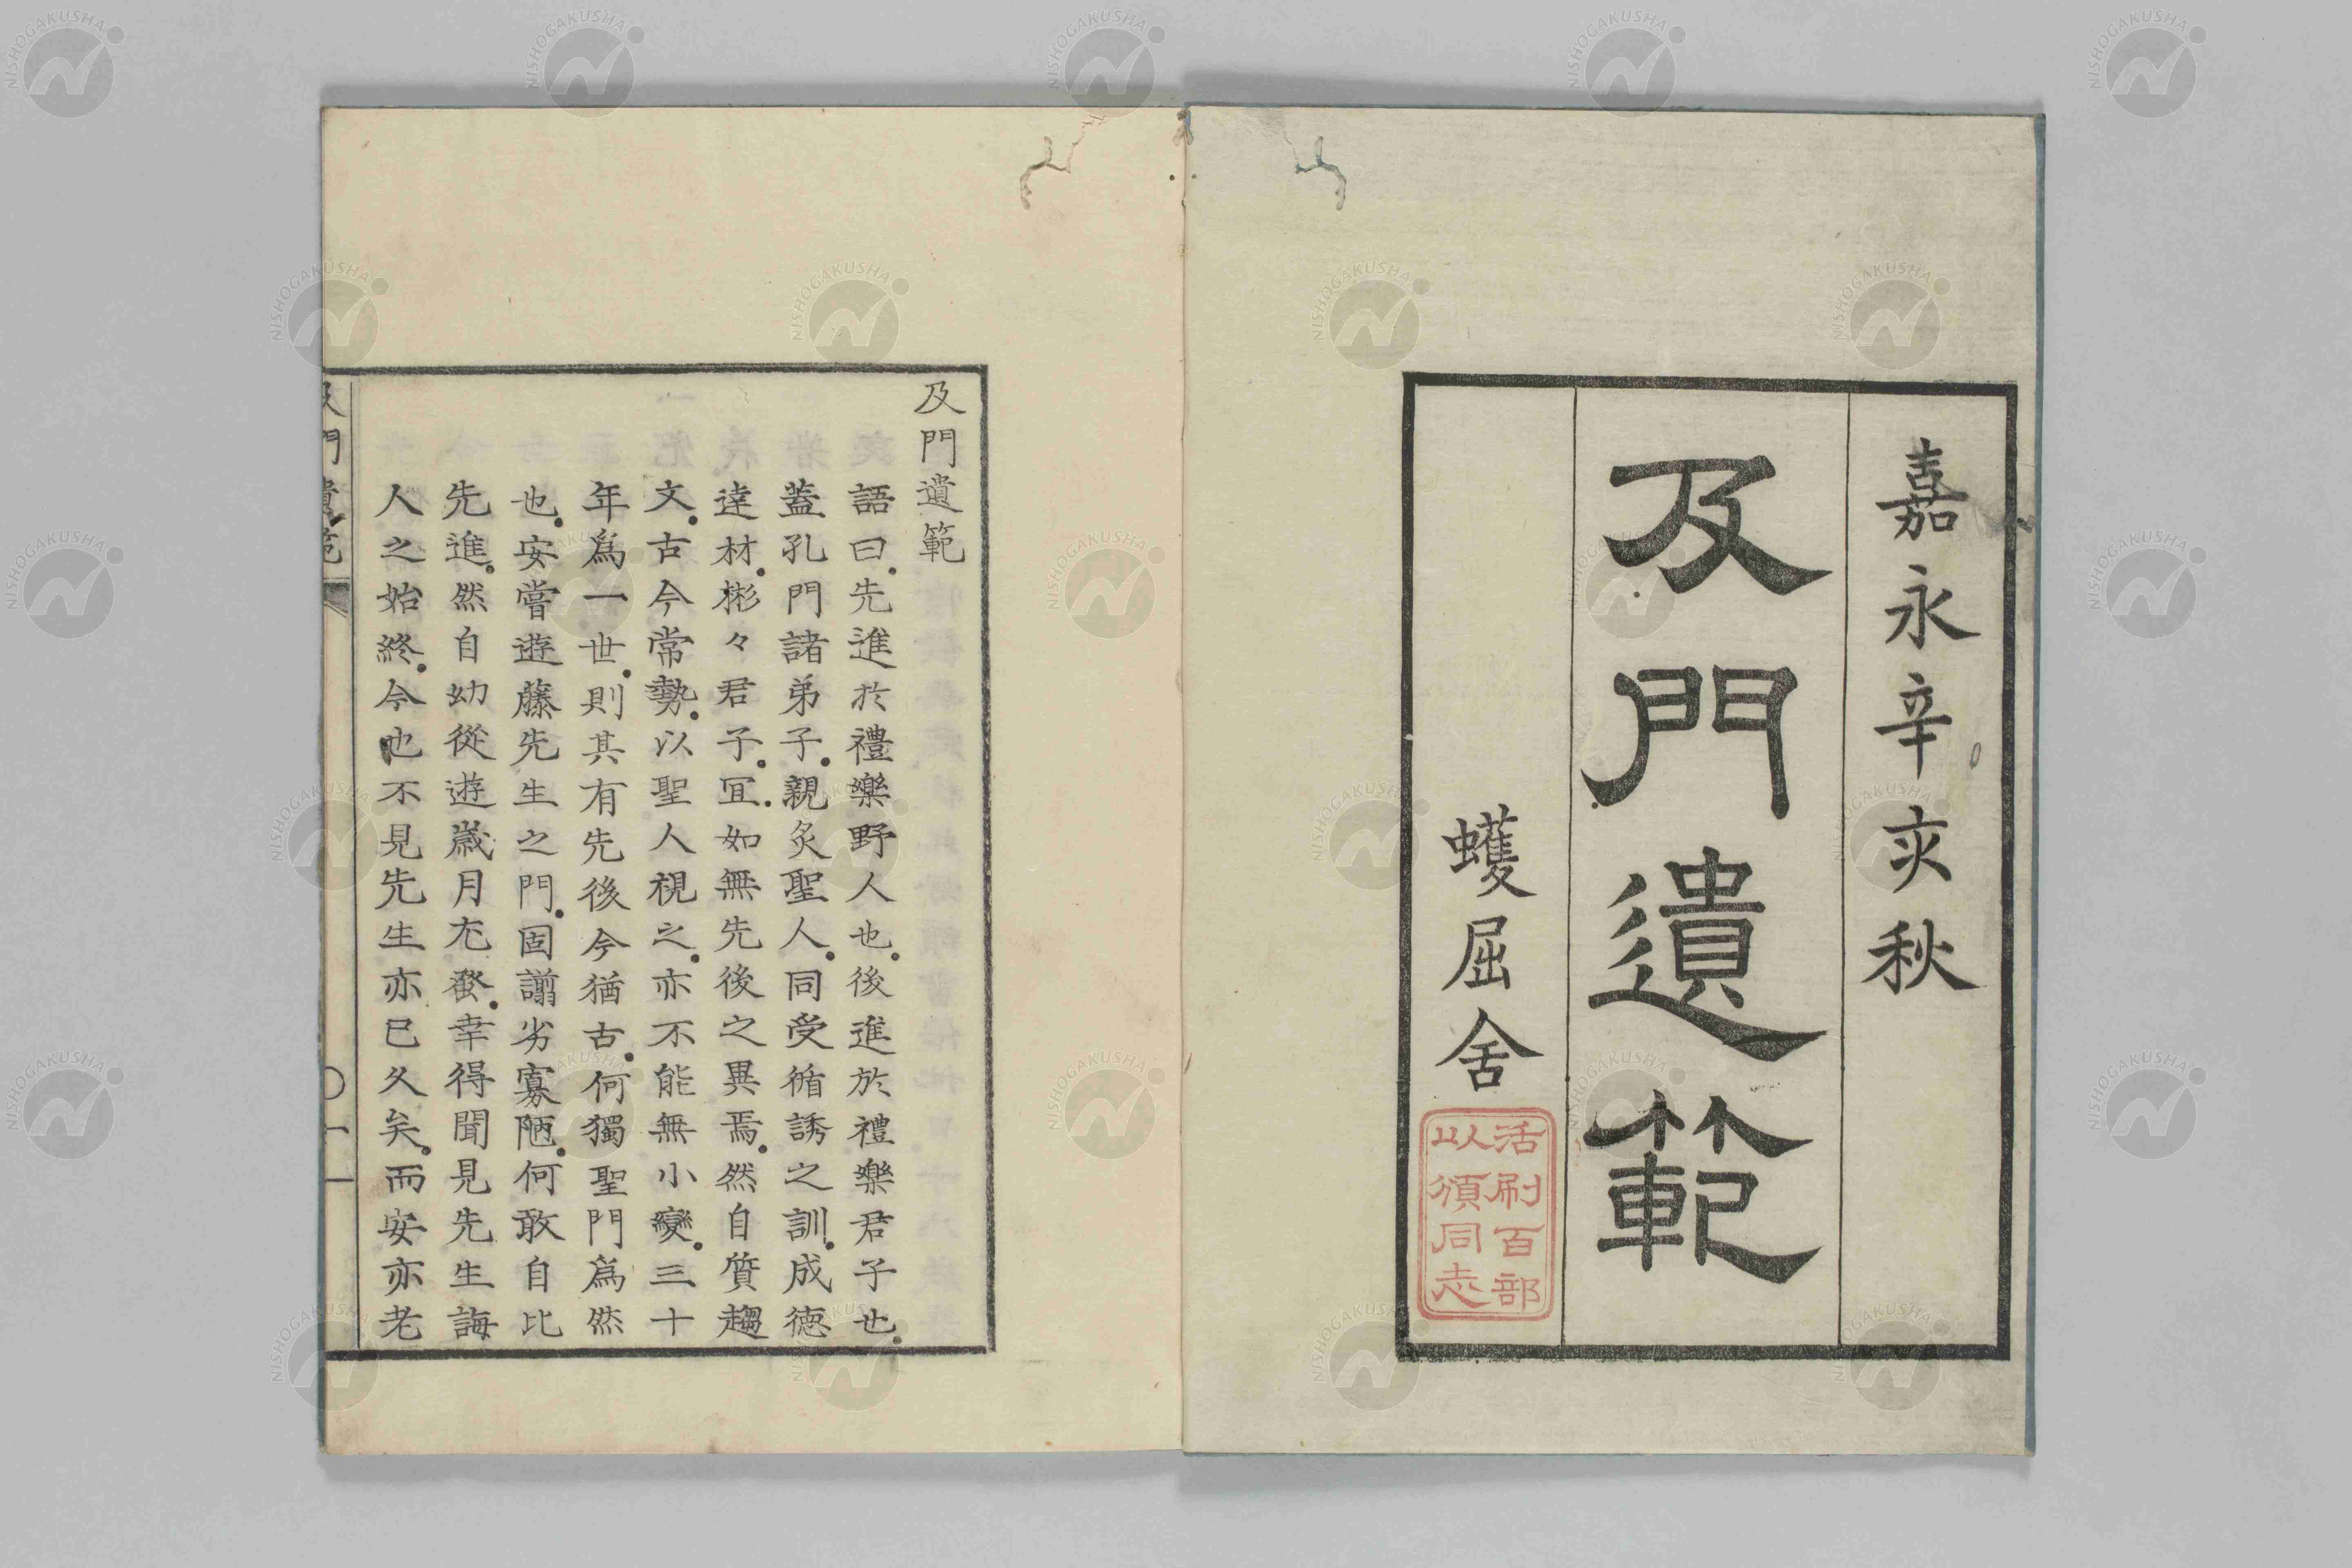 嘉永辛亥秋
及門遺範
蠖屈舍
活刷百部
以頒同志
及門遺範
語曰先進於禮樂野人也後進於禮樂君子也
蓋孔門諸弟子親炙聖人同受循誘之訓成德
達材彬々君子冝如無先後之異焉然自質趨
文古今常勢以聖人視之亦不能無小變三十
年爲一世則其有先後今猶古何獨聖門爲然
也安嘗遊藤先生之門固謭劣寡陋何敢自比
先進然自幼從遊歲月尤發幸得聞見先生誨
人之始終今也不見先生亦已久矣而安亦老
及門遺範
一
NISHOGAKUSHA